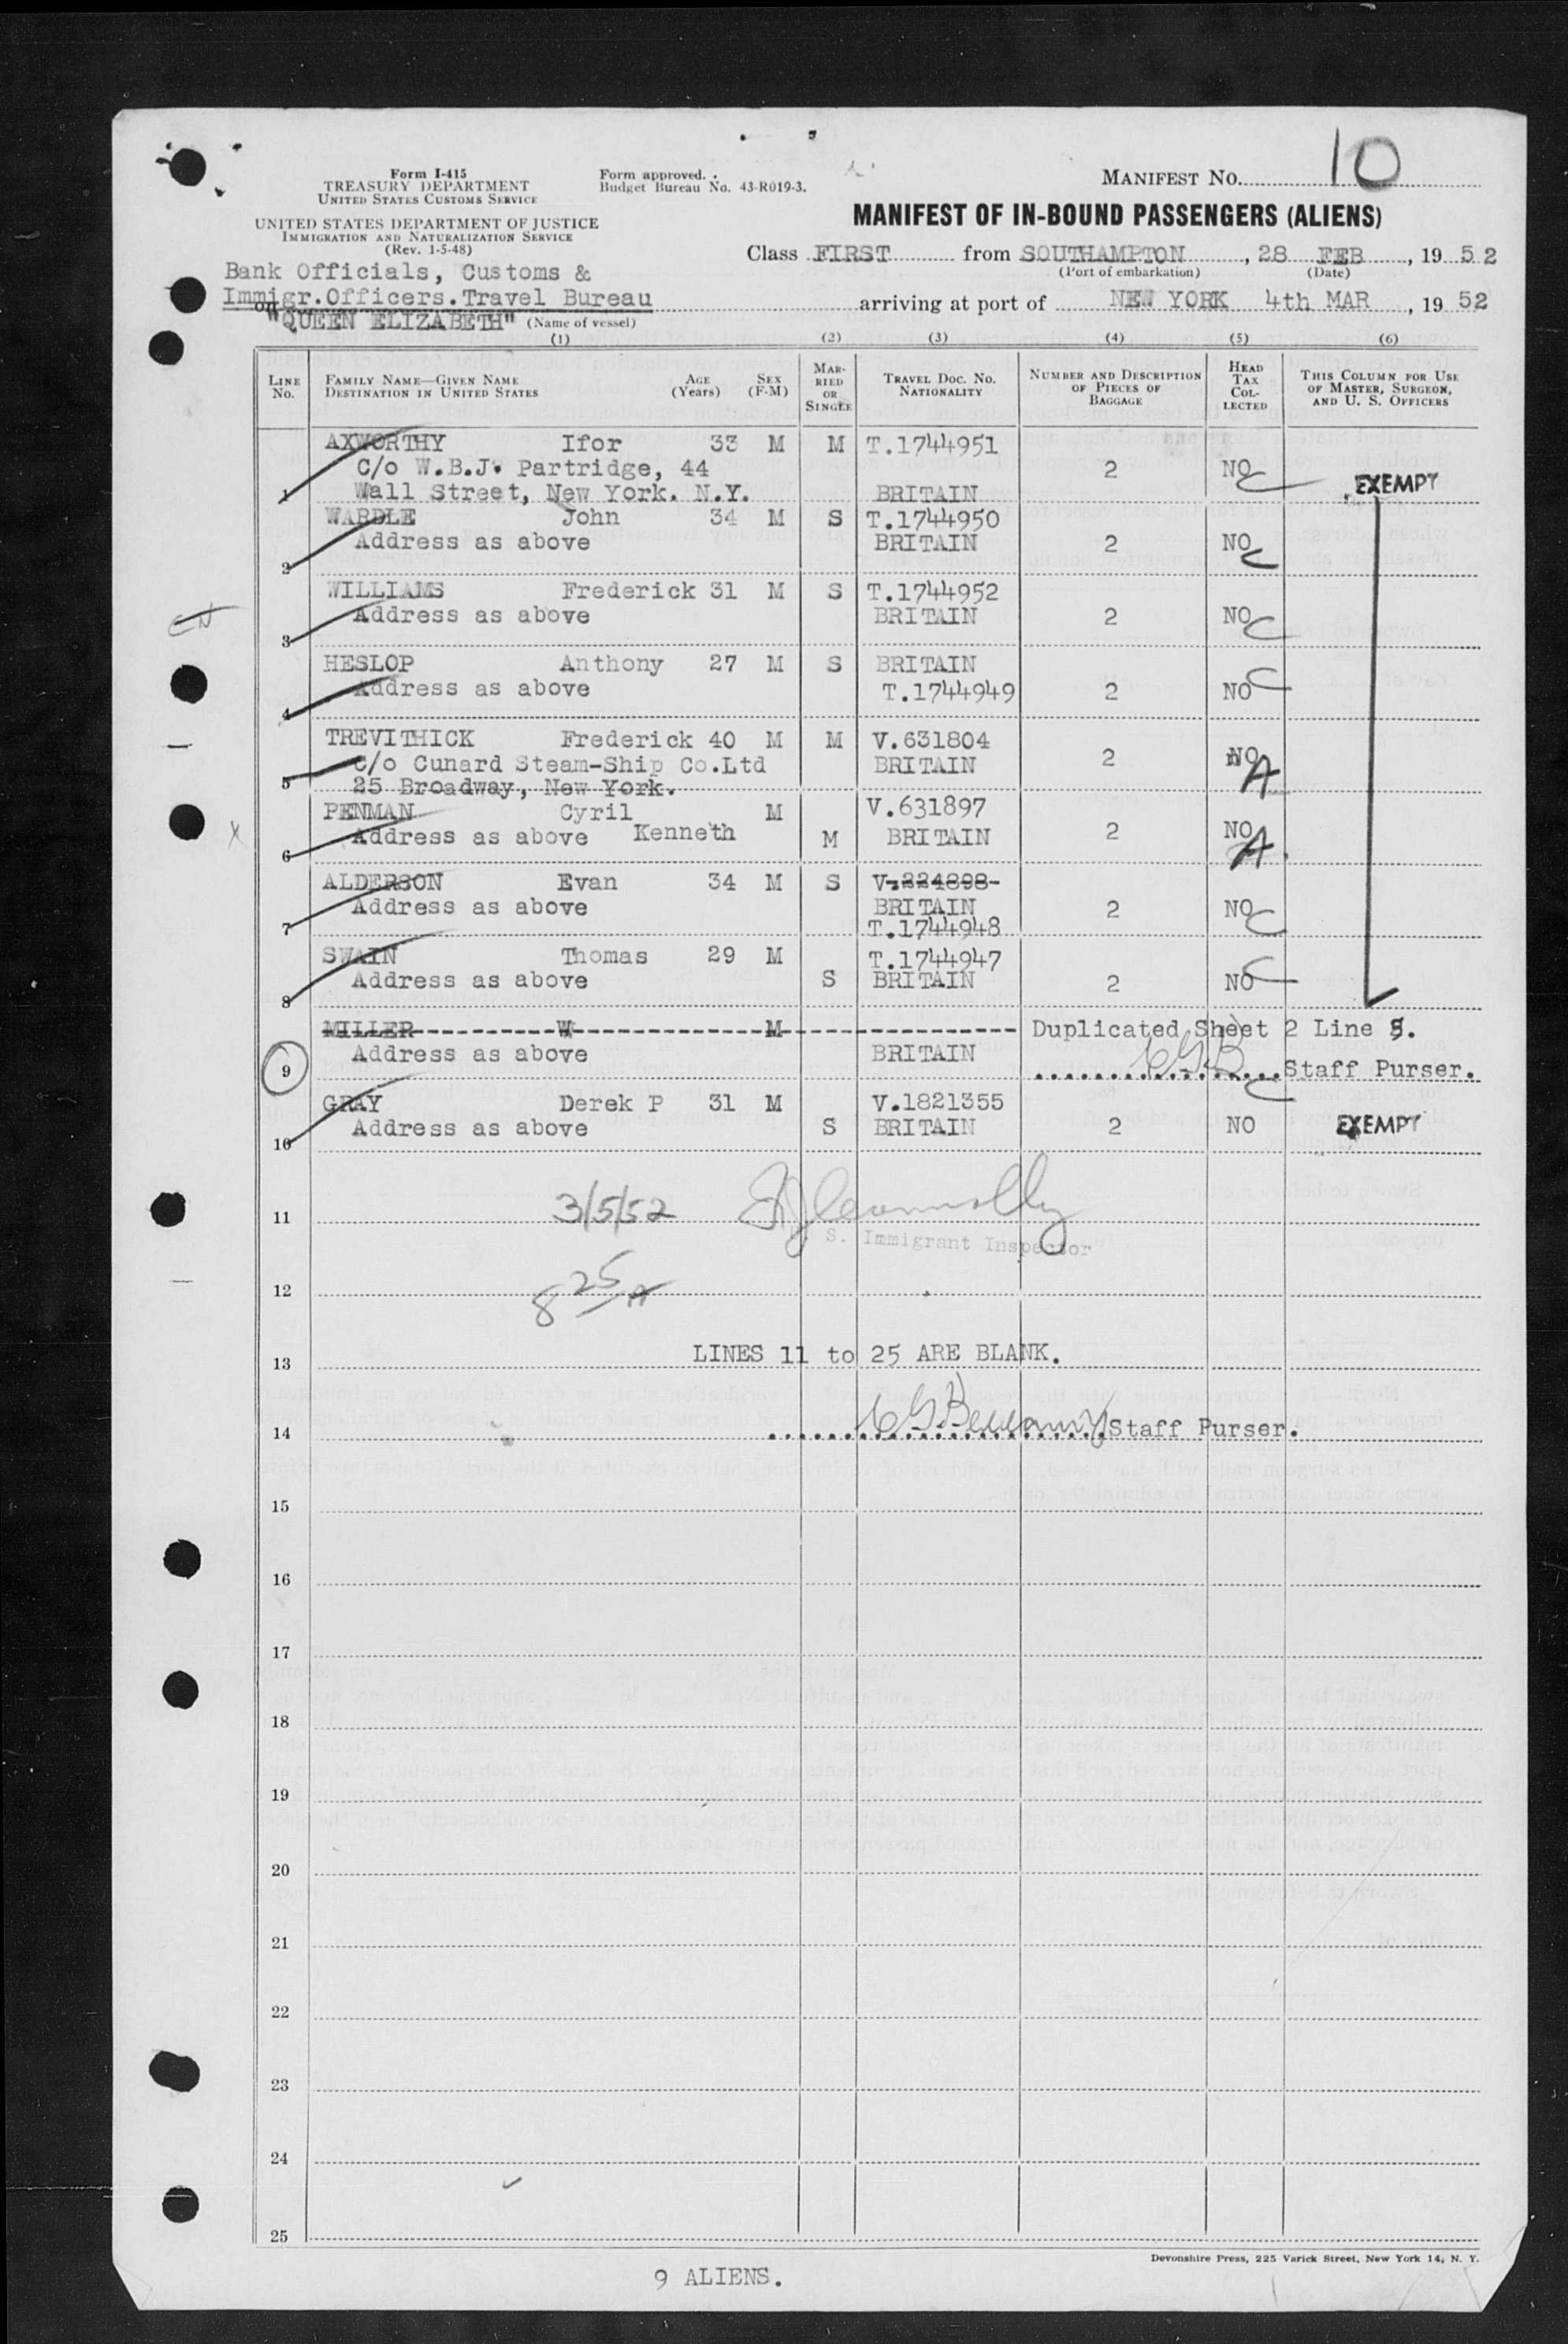 10
Form I-415
TREASURY DEPARTMENT
UNITED STATES CUSTOMS SERVICE
Form approved.
Budget Bureau No. 43-R019-3.
MANIFEST No.
UNITED STATES DEPARTMENT OF JUSTICE
IMMIGRATION AND NATURALIZATION SERVICE
(Rev. 1-5-48)
MANIFEST OF IN-BOUND PASSENGERS (ALIENS)
Class FIRST from SOUTHAMPTON, 28 FEB, 1952
(Port of embarkation) (Date)
Bank Officials, Customs &
Immigr.Officers.Travel Bureau
on "QUEEN ELIZABETH" (Name of vessel)
arriving at port of NEW YORK 4th MAR, 1952
(1) (2) (3) (4) (5) (6)
LINE No.
FAMILY NAME—GIVEN NAME
DESTINATION IN UNITED STATES
AGE (Years)
SEX (F-M)
MARRIED OR SINGLE
TRAVEL DOC. NO.
NATIONALITY
NUMBER AND DESCRIPTION OF PIECES OF BAGGAGE
HEAD TAX COLLECTED
THIS COLUMN FOR USE OF MASTER, SURGEON, AND U. S. OFFICERS
AXWORTHY Ifor 33 M M T.1744951
C/o W.B.J. Partridge, 44 2 NO C
1 Wall Street, New York. N.Y. BRITAIN EXEMPT
WARDLE John 34 M S T.1744950
2 Address as above BRITAIN 2 NO C
WILLIAMS Frederick 31 M S T.1744952
3 Address as above BRITAIN 2 NO C
HESLOP Anthony 27 M S BRITAIN
4 Address as above T.1744949 2 NO C
TREVITHICK Frederick 40 M M V.631804
5 C/o Cunard Steam-Ship Co.Ltd BRITAIN 2 NO A
25 Broadway, New York.
PENMAN Cyril M V.631897
6 Address as above Kenneth M BRITAIN 2 NO A
ALDERSON Evan 34 M S V.224898
7 Address as above BRITAIN 2 NO C
T.1744948
SWAIN Thomas 29 M T.1744947
8 Address as above S BRITAIN 2 NO C
MILLER W M Duplicated Sheet 2 Line 5.
9 Address as above BRITAIN CGB Staff Purser.
GRAY Derek P 31 M V.1821355 C
10 Address as above S BRITAIN 2 NO EXEMPT
11 3/5/52
S. Immigrant Inspector
12 8 25 A
13 LINES 11 to 25 ARE BLANK.
14 Staff Purser.
15
16
17
18
19
20
21
22
23
24
25
Devonshire Press, 225 Varick Street, New York 14, N. Y.
9 ALIENS.